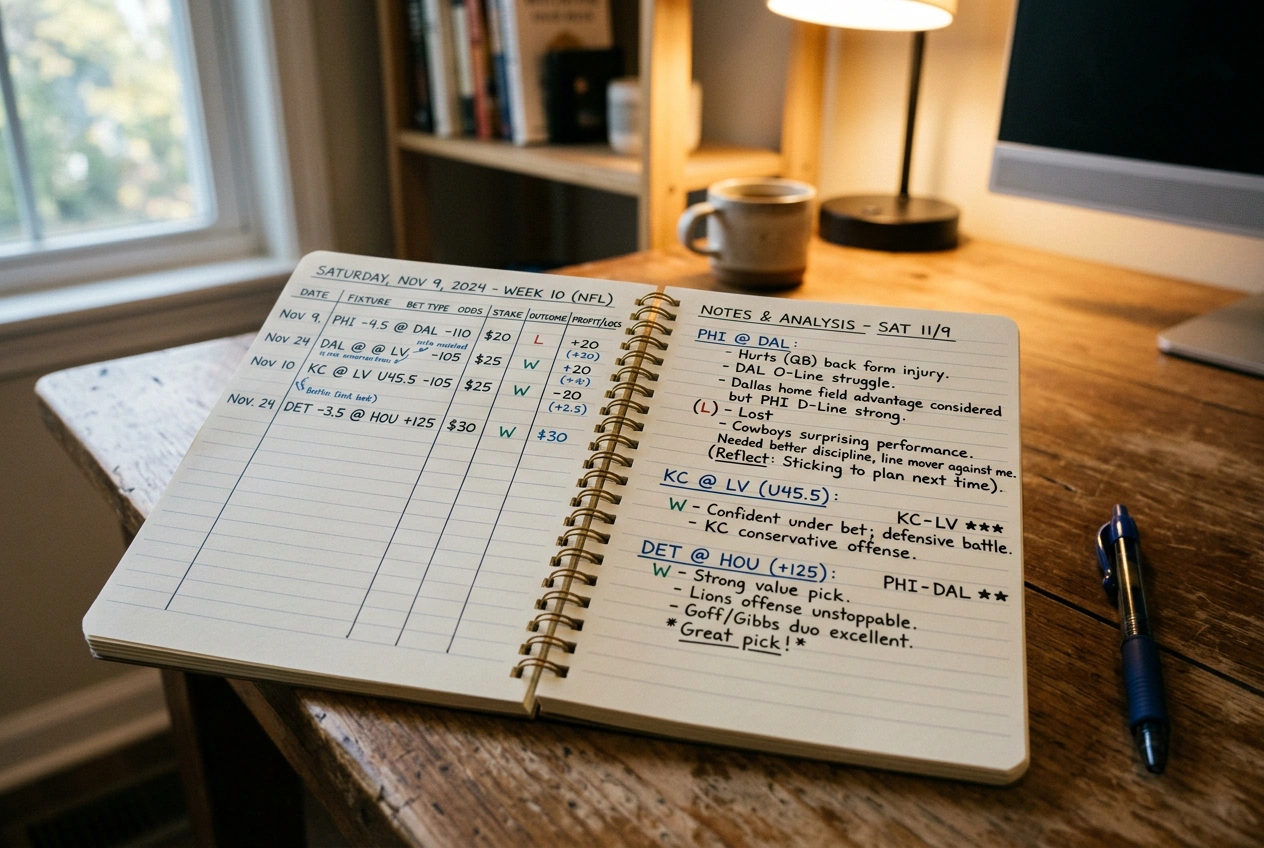 SATURDAY, NOV 9, 2024 - WEEK 10 (NFL)
DATE FIXTURE BET TYPE ODDS STAKE OUTCOME PROFIT/LOCS
Nov 9. PHI -4.5 @ DAL -110 $20 L +20
(+20)
Nov 24 DAL @ @ LV -105 $25 W +20
Nov 10 KC @ LV U45.5 -105 $25 W -20
(+2.5)
Nov. 24 DET -3.5 @ HOU +125 $30 W $30
NOTES & ANALYSIS - SAT 11/9
PHI @ DAL:
- Hurts (QB) back form injury.
- DAL O-Line struggle.
- Dallas home field advantage considered
but PHI D-Line strong.
(L) - Lost
- Cowboys surprising performance.
Needed better discipline, line mover against me.
(Reflect: Sticking to plan next time).
KC @ LV (U45.5):
KC-LV ★★★
W - Confident under bet; defensive battle.
- KC conservative offense.
DET @ HOU (+125):
PHI-DAL ★★
W - Strong value pick.
- Lions offense unstoppable.
- Goff/Gibbs duo excellent.
*Great pick!*